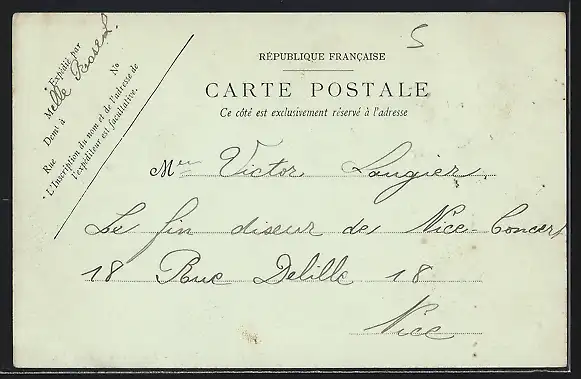 Expédié par
Melle Rose L.
Demt à
Rue No
L'Inscription du nom et de l'adresse de
l'expéditeur est facultative.
5
RÉPUBLIQUE FRANÇAISE
CARTE POSTALE
Ce côté est exclusivement réservé à l'adresse
Mer Victor Laugier.
Le fin diseur de Nice-Concert
18 Rue Delille 18
Nice